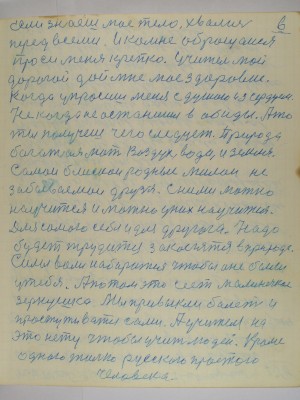 6
если знаеш мое тело, хвалил
перед всеми. И ко мне обращался
проси меня крепко. Учитель мой
дорогой дай мне мое здоровие.
Когда упросиш меня с душою и сердцем
Не когда не останиш в обиды. А то
ты получеш чего следует. Природа
богатая мать воздух вода, и земля.
Самои близкои родныи милаи не
забываемаи друзя. С ними можно
научится и можно у них научится.
Для самого себя и для другога. Надо
будет трудится закалятся в природе.
Силы воли набиратся чтобы не болел
у тебя. А потом это сеет маленичкае
зернушка. Мы привыкли болеть и
простуживатся сами. А учителя на
это нету чтобы учит людей. Кроме
одного только русского простого
человека.